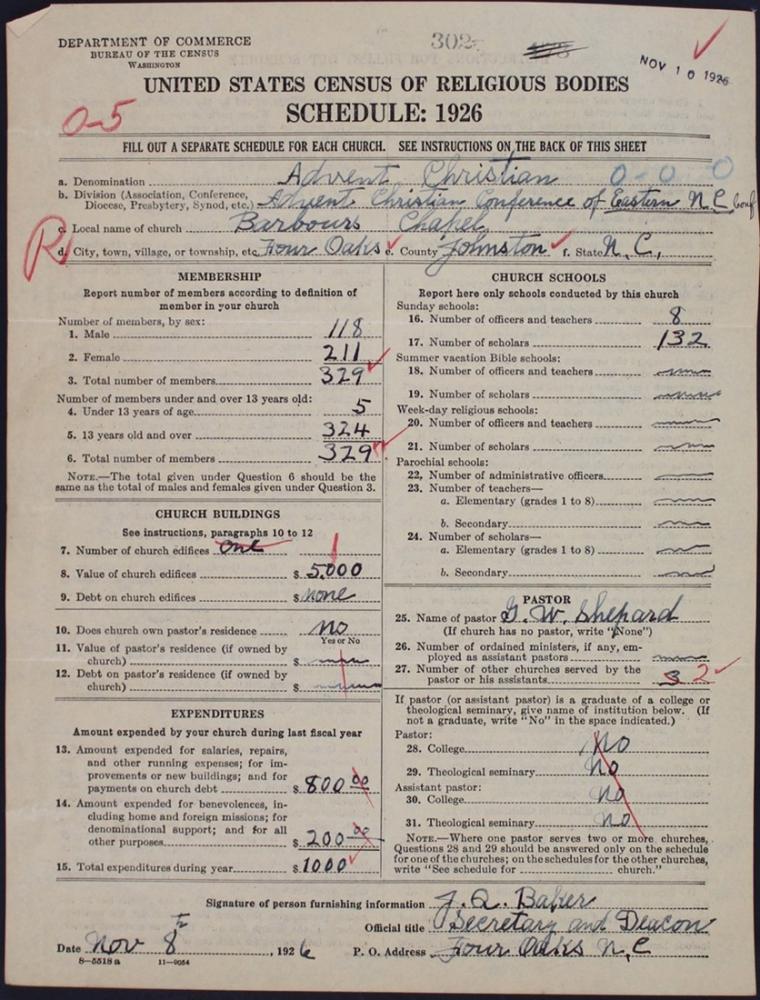 DEPARTMENT OF COMMERCE
BUREAU OF THE CENSUS
WASHINGTON
302
NOV 10 1926
UNITED STATES CENSUS OF RELIGIOUS BODIES
SCHEDULE: 1926
0-5
FILL OUT A SEPARATE SCHEDULE FOR EACH CHURCH. SEE INSTRUCTIONS ON THE BACK OF THIS SHEET
a. Denomination Advent Christian 0-0 0
b. Division (Association, Conference, Diocese, Presbytery, Synod, etc.) Advent Christian Conference of Eastern N.C. Conf
c. Local name of church Barbours Chapel
R
d. City, town, village, or township, etc. Four Oaks e. County Johnston f. State N. C.,
MEMBERSHIP
Report number of members according to definition of
member in your church
Number of members, by sex:
1. Male 118
2. Female 211
3. Total number of members 329
Number of members under and over 13 years old:
4. Under 13 years of age 5
5. 13 years old and over 324
6. Total number of members 329
NOTE.—The total given under Question 6 should be the
same as the total of males and females given under Question 3.
CHURCH BUILDINGS
See instructions, paragraphs 10 to 12
7. Number of church edifices One 1
8. Value of church edifices $ 5,000
9. Debt on church edifices $ None
10. Does church own pastor's residence No
Yes or No
11. Value of pastor's residence (if owned by
church) $
12. Debt on pastor's residence (if owned by
church) $
EXPENDITURES
Amount expended by your church during last fiscal year
13. Amount expended for salaries, repairs,
and other running expenses; for im-
provements or new buildings; and for
payments on church debt $ 800 00
14. Amount expended for benevolences, in-
cluding home and foreign missions; for
denominational support; and for all
other purposes $ 200 00
15. Total expenditures during year $ 1000
CHURCH SCHOOLS
Report here only schools conducted by this church
Sunday schools:
16. Number of officers and teachers 8
17. Number of scholars 132
Summer vacation Bible schools:
18. Number of officers and teachers
19. Number of scholars
Week-day religious schools:
20. Number of officers and teachers
21. Number of scholars
Parochial schools:
22. Number of administrative officers
23. Number of teachers—
a. Elementary (grades 1 to 8)
b. Secondary
24. Number of scholars—
a. Elementary (grades 1 to 8)
b. Secondary
PASTOR
25. Name of pastor G. W. Shepard
(If church has no pastor, write "None")
26. Number of ordained ministers, if any, em-
ployed as assistant pastors
27. Number of other churches served by the
pastor or his assistants 3 2
If pastor (or assistant pastor) is a graduate of a college or
theological seminary, give name of institution below. (If
not a graduate, write "No" in the space indicated.)
Pastor:
28. College No
29. Theological seminary No
Assistant pastor:
30. College No
31. Theological seminary No
NOTE.—Where one pastor serves two or more churches,
Questions 28 and 29 should be answered only on the schedule
for one of the churches; on the schedules for the other churches,
write "See schedule for ........ church."
Signature of person furnishing information J. Q. Baker
Official title Secretary and Deacon
Date Nov 8th, 1926 P. O. Address Four Oaks N.C
8—5518 a 11—9054